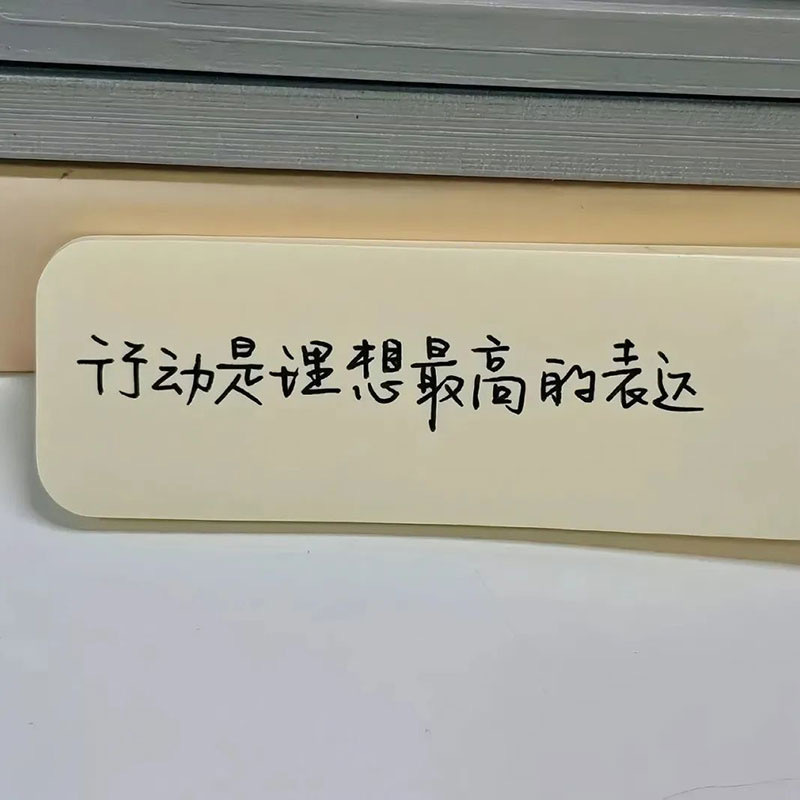 行动是理想最高的表达